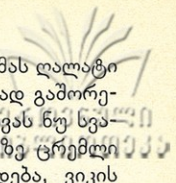 მას ღალატი
ად გაშორე-
ვას ნუ სვა-
ზე ცრემლი
დება, ვიკის